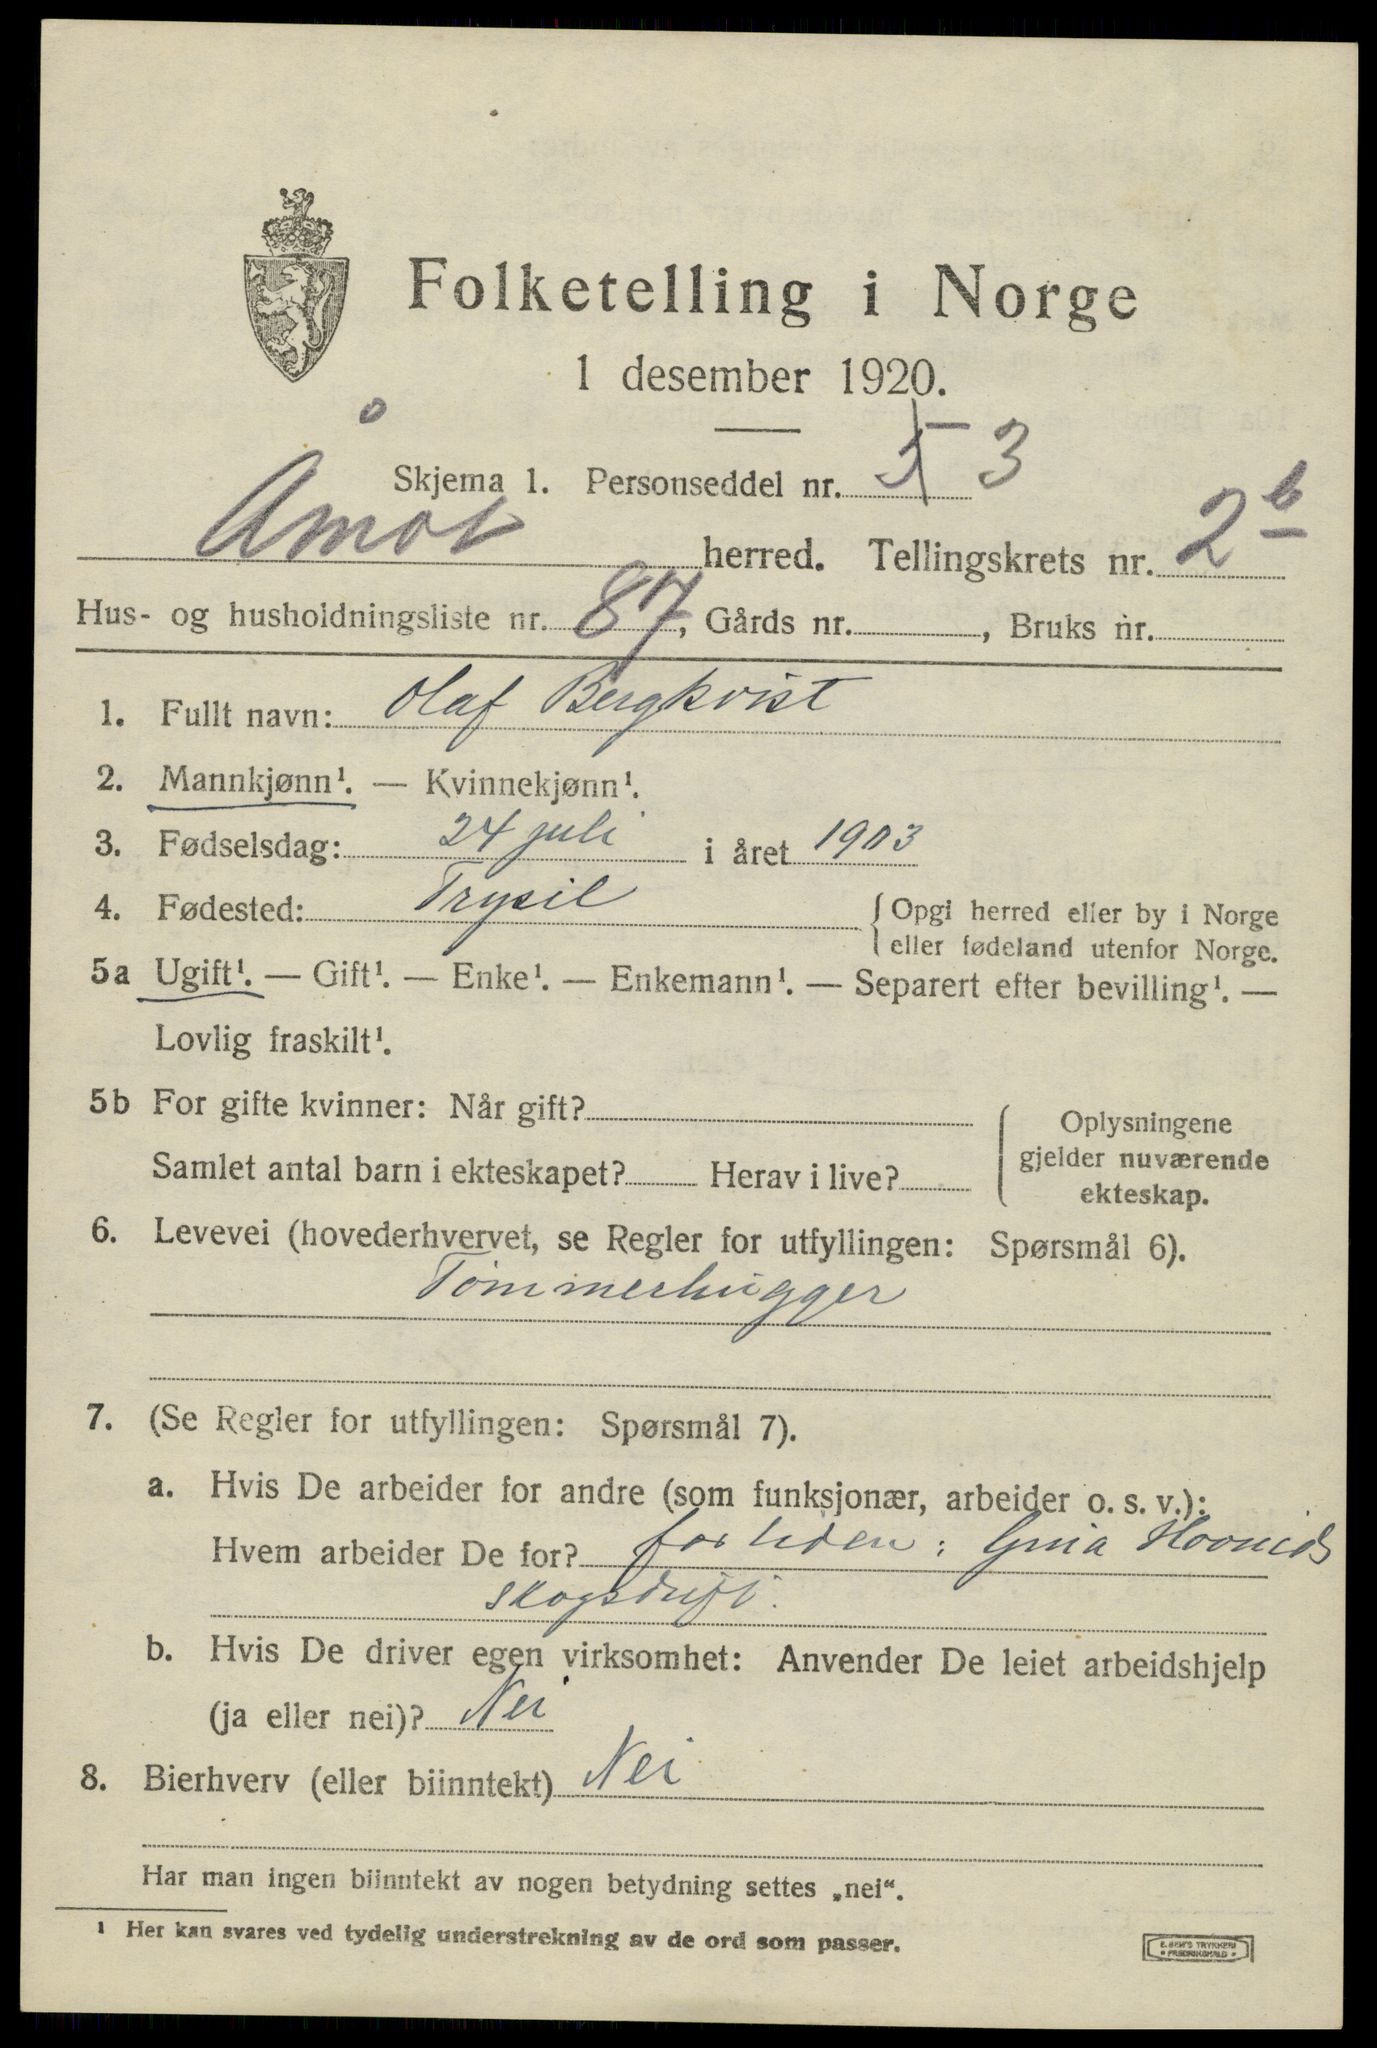 Folketelling i Norge
1 desember 1920.
Skjema 1. Personseddel nr. 3
Åmot herred. Tellingskrets nr. 2b
Hus- og husholdningsliste nr. 87, Gårds nr. , Bruks nr.
1. Fullt navn: Olaf Bergkvist
2. Mannkjønn¹. — Kvinnekjønn¹.
3. Fødselsdag: 24 juli i året 1903
4. Fødested: Trysil {Opgi herred eller by i Norge
eller fødeland utenfor Norge.
5a Ugift¹. — Gift¹. — Enke¹. — Enkemann¹. — Separert efter bevilling¹. —
Lovlig fraskilt¹.
5b For gifte kvinner: Når gift?
Samlet antal barn i ekteskapet? Herav i live?
Oplysningene
gjelder nuværende
ekteskap.
6. Levevei (hovederhvervet, se Regler for utfyllingen: Spørsmål 6).
Tømmerhugger
7. (Se Regler for utfyllingen: Spørsmål 7).
a. Hvis De arbeider for andre (som funksjonær, arbeider o. s. v.):
Hvem arbeider De for? for tiden:
skogsdrift.
b. Hvis De driver egen virksomhet: Anvender De leiet arbeidshjelp
(ja eller nei)? Nei
8. Bierhverv (eller biinntekt) Nei
Har man ingen biinntekt av nogen betydning settes „nei“.
¹ Her kan svares ved tydelig understrekning av de ord som passer.
E. SEM'S TRYKKERI
• FREDRIKSHALD •